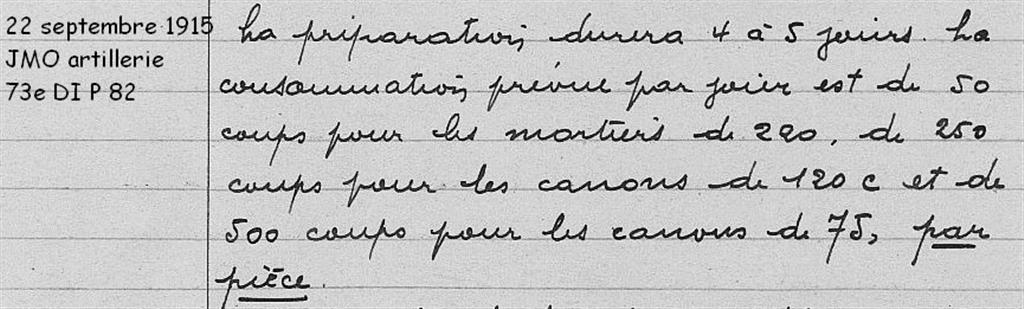 22 septembre 1915
JMO artillerie
73e DI P 82
La préparation durera 4 à 5 jours. La
consommation prévue par jour est de 50
coups pour les mortiers de 220, de 250
coups pour les canons de 120 c et de
500 coups pour les canons de 75, par
pièce.